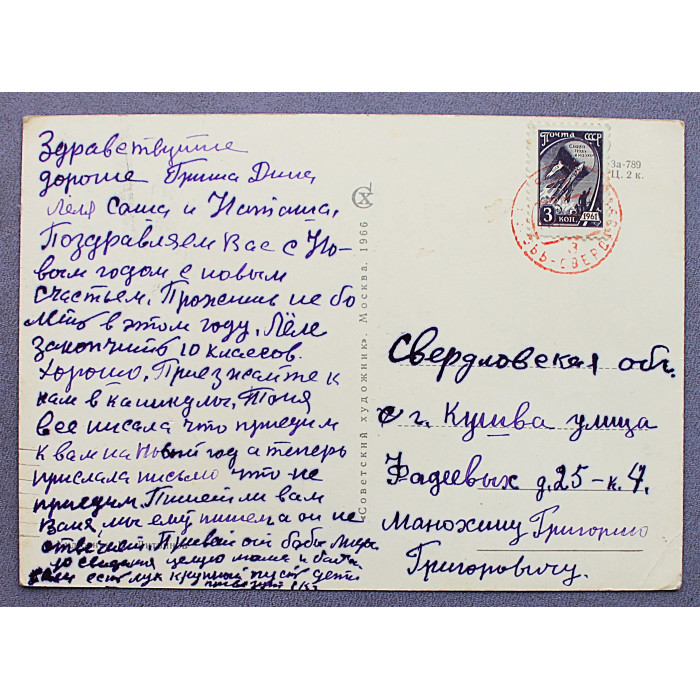 Здравствуйте
дорогие Гриша Дина
Лёля Саша и Наташа,
Поздравляем Вас с Но-
вым годом с новым
счастьем, Прожить не бо
леть в этом году, Лёле
закончить 10 классов.
хорошо, Приезжайте к
нам в каникулы, Тоня
все писала что приедим
к вам на Новый год а теперь
прислала письмо что не
приедим. Пишет ли вам
Ваня, мы ему пишем а он не
отвечает. Привет от бабы
до свидания целую мама и
если есть лук крупный пусть дети
привезут
«Советский художник». Москва. 1966
ПОЧТА СССР
3 КОП.
1961
За-789
Ц. 2 к.
Свердловская обл.
г. Кушва улица
Фадеевых д. 25-к. 4.
Манохину Григорию
Григоровичу.